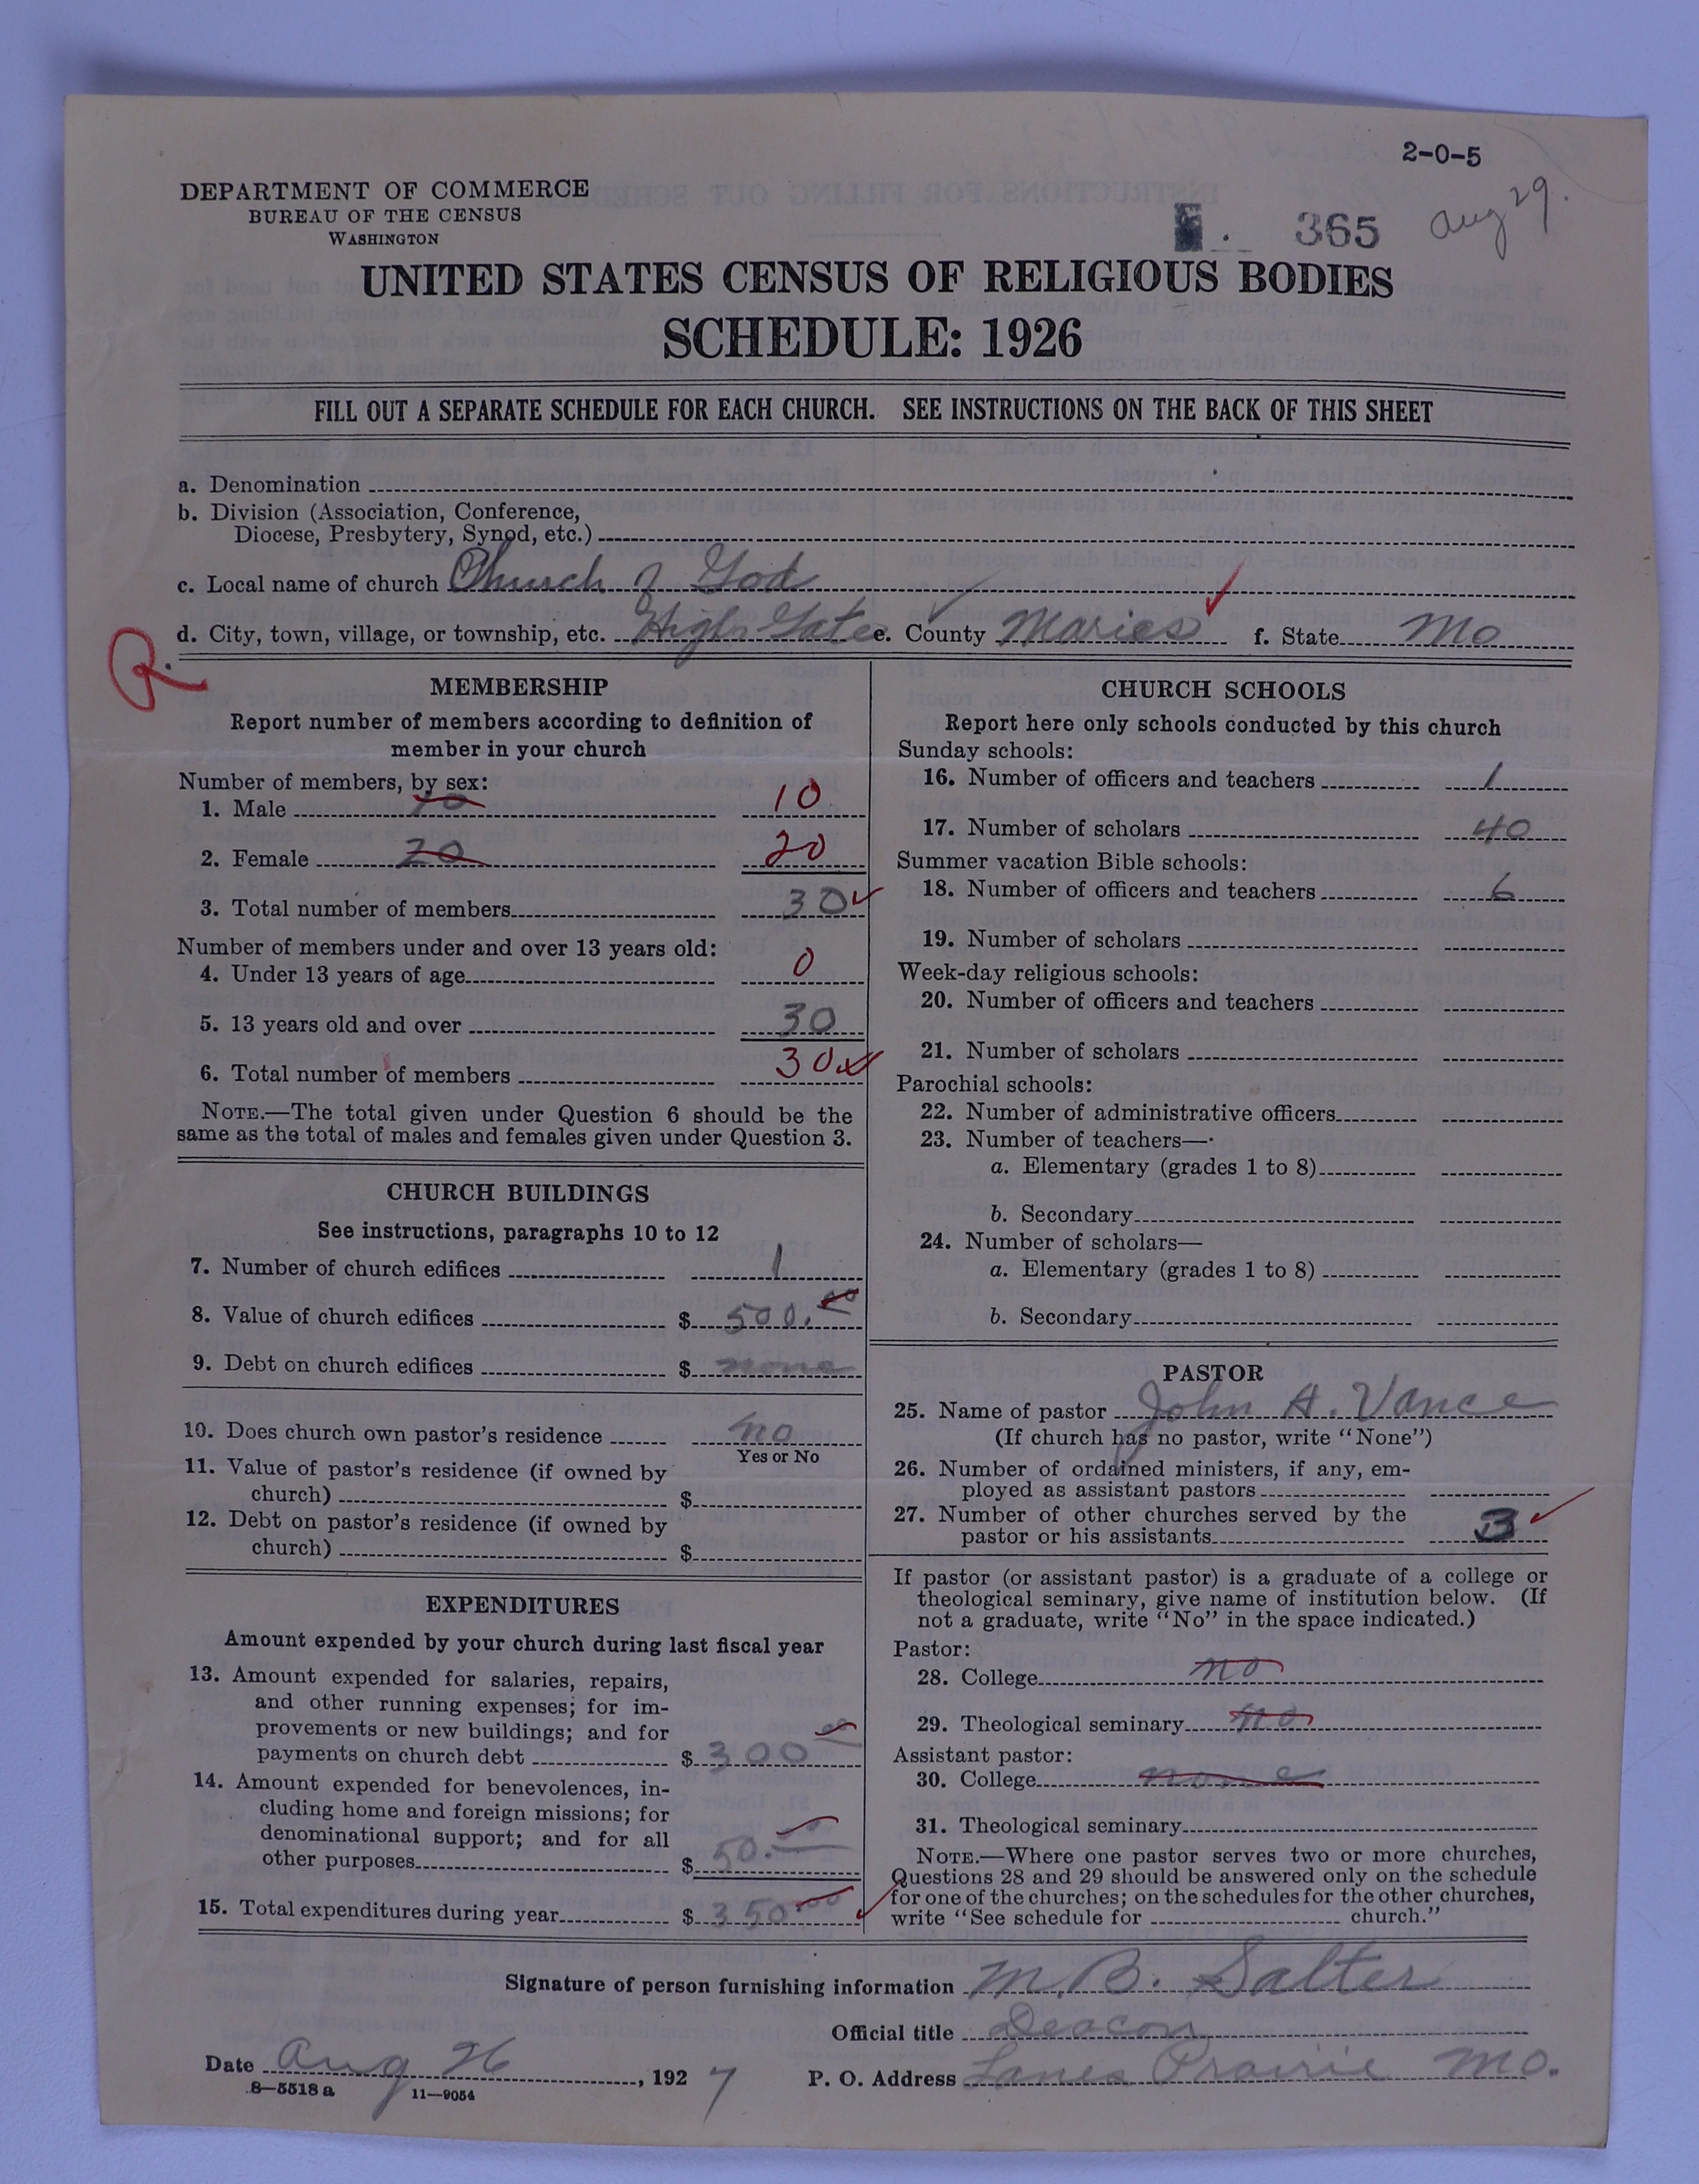 2-0-5
DEPARTMENT OF COMMERCE
BUREAU OF THE CENSUS
WASHINGTON
365
Aug 29.
UNITED STATES CENSUS OF RELIGIOUS BODIES
SCHEDULE: 1926
FILL OUT A SEPARATE SCHEDULE FOR EACH CHURCH. SEE INSTRUCTIONS ON THE BACK OF THIS SHEET
a. Denomination
b. Division (Association, Conference,
Diocese, Presbytery, Synod, etc.)
c. Local name of church Church of God
d. City, town, village, or township, etc. High Gate e. County Maries f. State Mo
R.
MEMBERSHIP
Report number of members according to definition of
member in your church
Number of members, by sex:
1. Male 10 10
2. Female 20 20
3. Total number of members 30
Number of members under and over 13 years old:
4. Under 13 years of age 0
5. 13 years old and over 30
6. Total number of members 30
NOTE.—The total given under Question 6 should be the
same as the total of males and females given under Question 3.
CHURCH BUILDINGS
See instructions, paragraphs 10 to 12
7. Number of church edifices 1
8. Value of church edifices $ 500.00
9. Debt on church edifices $ none
10. Does church own pastor's residence no
Yes or No
11. Value of pastor's residence (if owned by
church) $
12. Debt on pastor's residence (if owned by
church) $
EXPENDITURES
Amount expended by your church during last fiscal year
13. Amount expended for salaries, repairs,
and other running expenses; for im-
provements or new buildings; and for
payments on church debt $ 300 00
14. Amount expended for benevolences, in-
cluding home and foreign missions; for
denominational support; and for all
other purposes $ 50.
15. Total expenditures during year $ 350.00
CHURCH SCHOOLS
Report here only schools conducted by this church
Sunday schools:
16. Number of officers and teachers 1
17. Number of scholars 40
Summer vacation Bible schools:
18. Number of officers and teachers 6
19. Number of scholars
Week-day religious schools:
20. Number of officers and teachers
21. Number of scholars
Parochial schools:
22. Number of administrative officers
23. Number of teachers—
a. Elementary (grades 1 to 8)
b. Secondary
24. Number of scholars—
a. Elementary (grades 1 to 8)
b. Secondary
PASTOR
25. Name of pastor John A. Vance
(If church has no pastor, write "None")
26. Number of ordained ministers, if any, em-
ployed as assistant pastors
27. Number of other churches served by the
pastor or his assistants 3
If pastor (or assistant pastor) is a graduate of a college or
theological seminary, give name of institution below. (If
not a graduate, write "No" in the space indicated.)
Pastor:
28. College no
29. Theological seminary no
Assistant pastor:
30. College none
31. Theological seminary
NOTE.—Where one pastor serves two or more churches,
Questions 28 and 29 should be answered only on the schedule
for one of the churches; on the schedules for the other churches,
write "See schedule for church."
Signature of person furnishing information M. B. Salter
Official title Deacon
Date Aug 26, 1927 P. O. Address Lanes Prairie Mo.
8—5518 a 11—9054